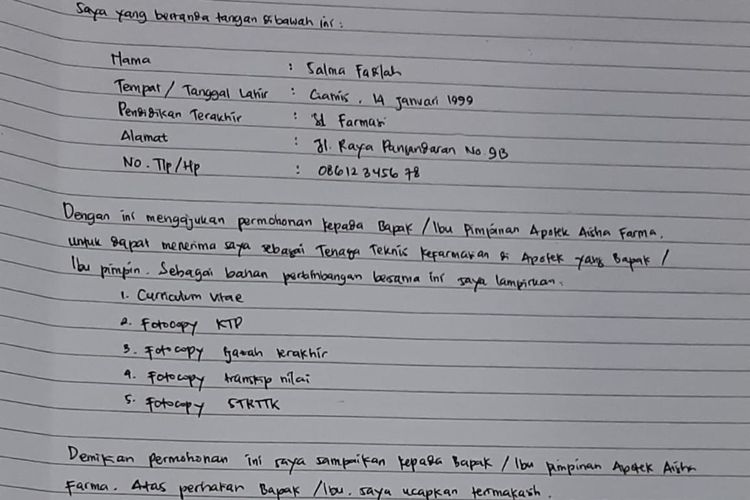 Saya yang bertanda tangan dibawah ini :
Nama : Salma Fadlah
Tempat / Tanggal Lahir : Ciamis, 14 Januari 1999
Pendidikan Terakhir : S1 Farmasi
Alamat : Jl. Raya Pangandaran No. 9B
No. Tlp / Hp : 0861 2345678
Dengan ini mengajukan permohonan kepada Bapak / Ibu Pimpinan Apotek Aisha Farma,
untuk dapat menerima saya sebagai Tenaga Teknis Kefarmasian di Apotek yang Bapak /
Ibu pimpin. Sebagai bahan pertimbangan bersama ini saya lampirkan.
1. Curriculum vitae
2. Fotocopy KTP
3. Fotocopy Ijazah terakhir
4. Fotocopy transkip nilai
5. Fotocopy STRTTK
Demikian Permohonan ini saya sampaikan kepada Bapak / Ibu pimpinan Apotek Aisha
Farma. Atas perhatian Bapak / Ibu. saya ucapkan terimakasih.